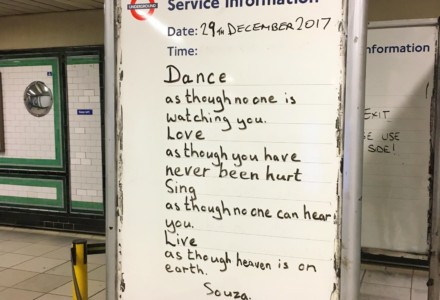 UNDERGROUND
Service Information
Date: 29TH DECEMBER 2017
Time:
Dance
as though no one is
watching you.
Love
as though you have
never been hurt
Sing
as though no one can hear
you.
Live
as though heaven is on
earth.
Souza.
nformation
EXIT
SE USE
SIDE!